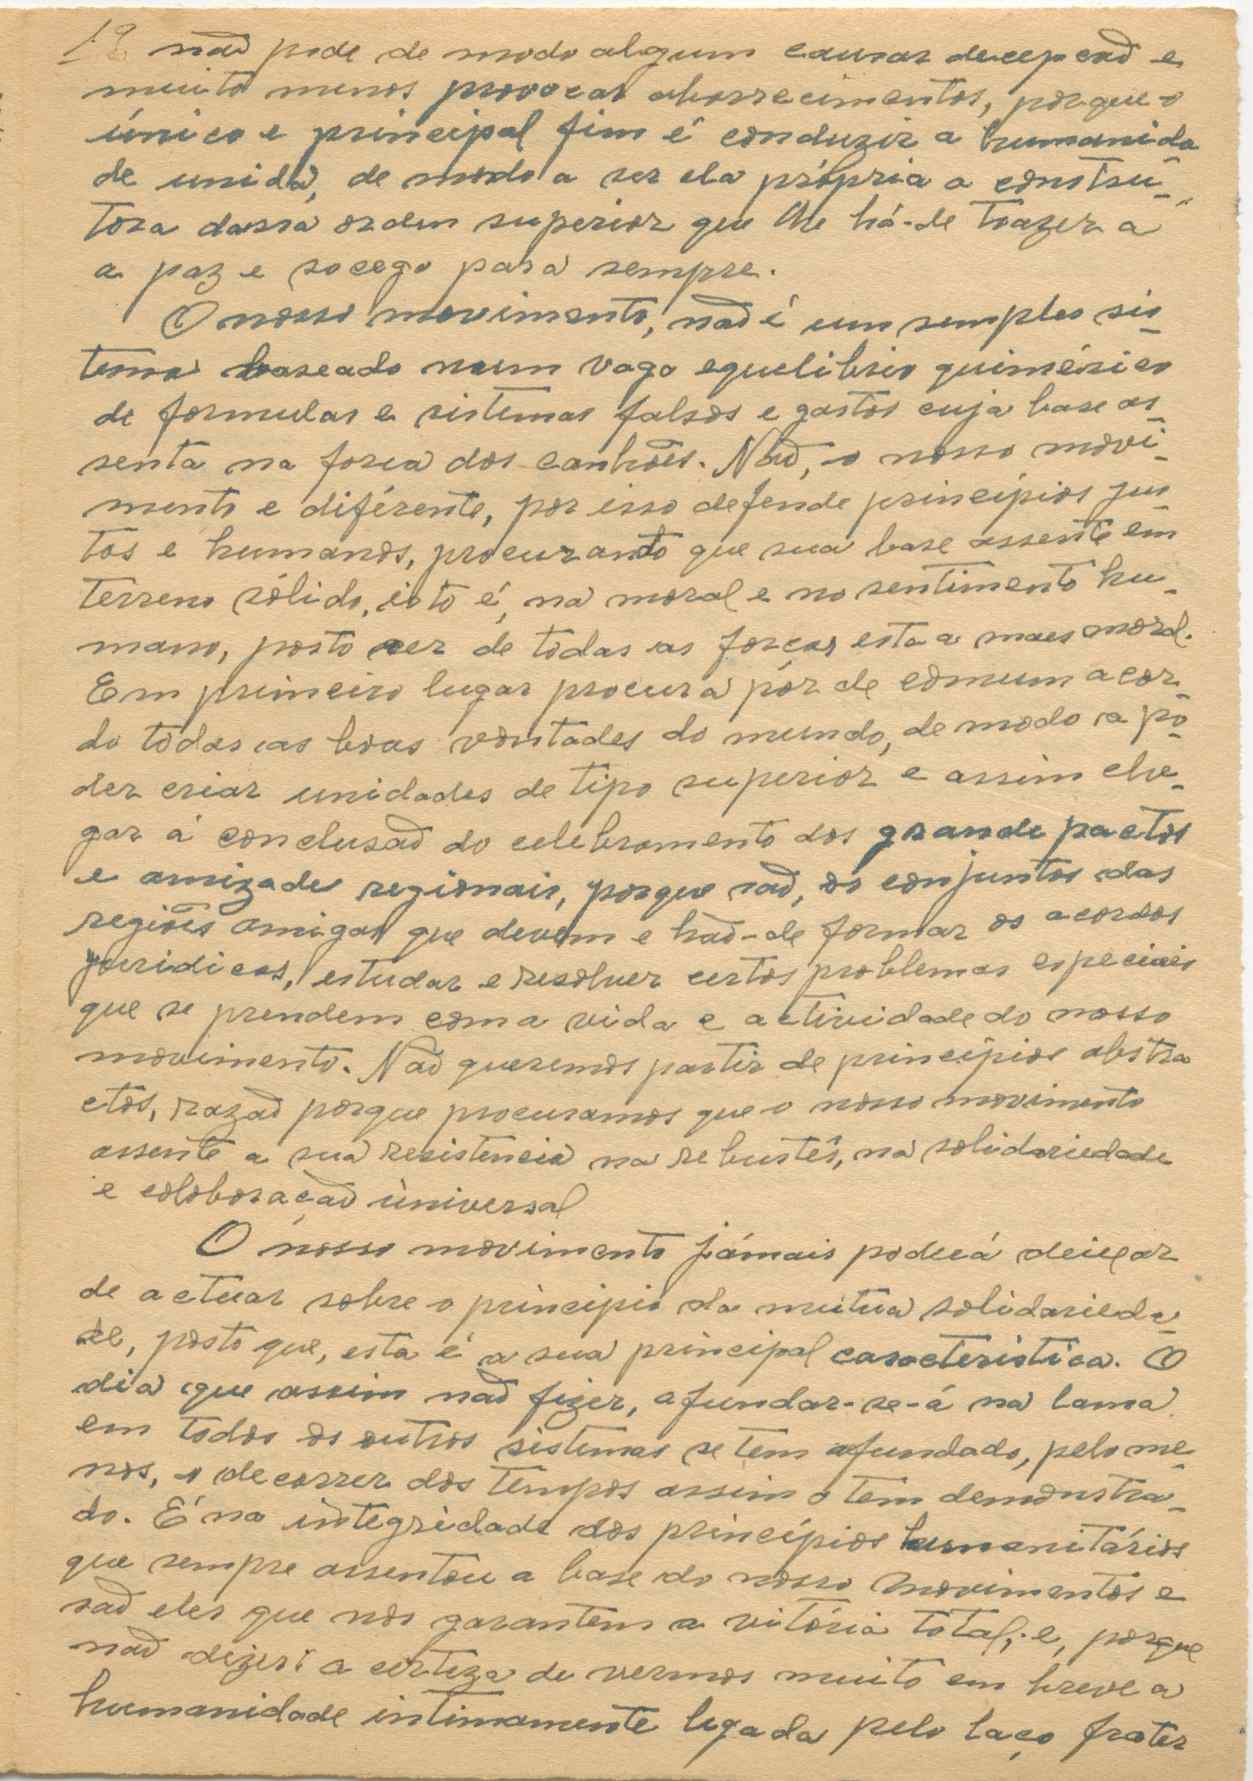 12 naõ pode de modo algum causar decepcaõ e
muito menos provocar aborrecimentos, porque o
único e principal fim é conduzir a humanida
de unida, de modo a ser ela própria a constru-
tora dessa ordem superior que lhe há-de trazer a
a paz e socego para sempre.
O nosso movimento, naõ é um semples sis-
tema baseado num vago equelibrio quimérico
de formulas e sistemas falsos e gastos cuja base as-
senta na forca dos canhões. Naõ, o nosso movi-
mento e diférente, por isso defende princípios jus
tos e humanos, procurando que sua base assente em
terreno sólido, isto é, na moral e no sentimento hu-
mano, posto ser de todas as forcas esta a maes moral.
Em primeiro lugar procura pôr de comum acor-
do todas as boas vontades do mundo, de modo a po-
der criar unidades de tipo superior e assim che-
gar á conclusaõ do celebramento dos grande pactos
e amizade regionais, porque saõ, os conjuntos das
regiões amigas que devem e haõ-de formar os acordos
juridicos, estudar e resolver certos problemas especiaes
que se prendem com a vida e actividade do nosso
movimento. Naõ queremos partir de princípios abstra
ctos, razaõ porque procuramos que o nosso movimento
assente a sua resistencia na rebustês, na solidariedade
e coloboraçaõ universal
O nosso movimento jámais poderá deixar
de actuar sobre o principio da mutua solidarieda-
de, posto que, esta é a sua principal caracteristica. O
dia que assim naõ fizer, afundar-se-á na lama
em todos os outros sistemas se tem afundado, pelo me-
nos, o decorrer dos tempos assim o tem demonstra-
do. É na integridade dos princípios humanitários
que sempre assentou a base do nosso movimentos e
saõ eles que nos garantem a vitória total; e, porque
naõ dizer: a certeza de vermos muito em breve a
humanidade intimamente legada pelo laço frater